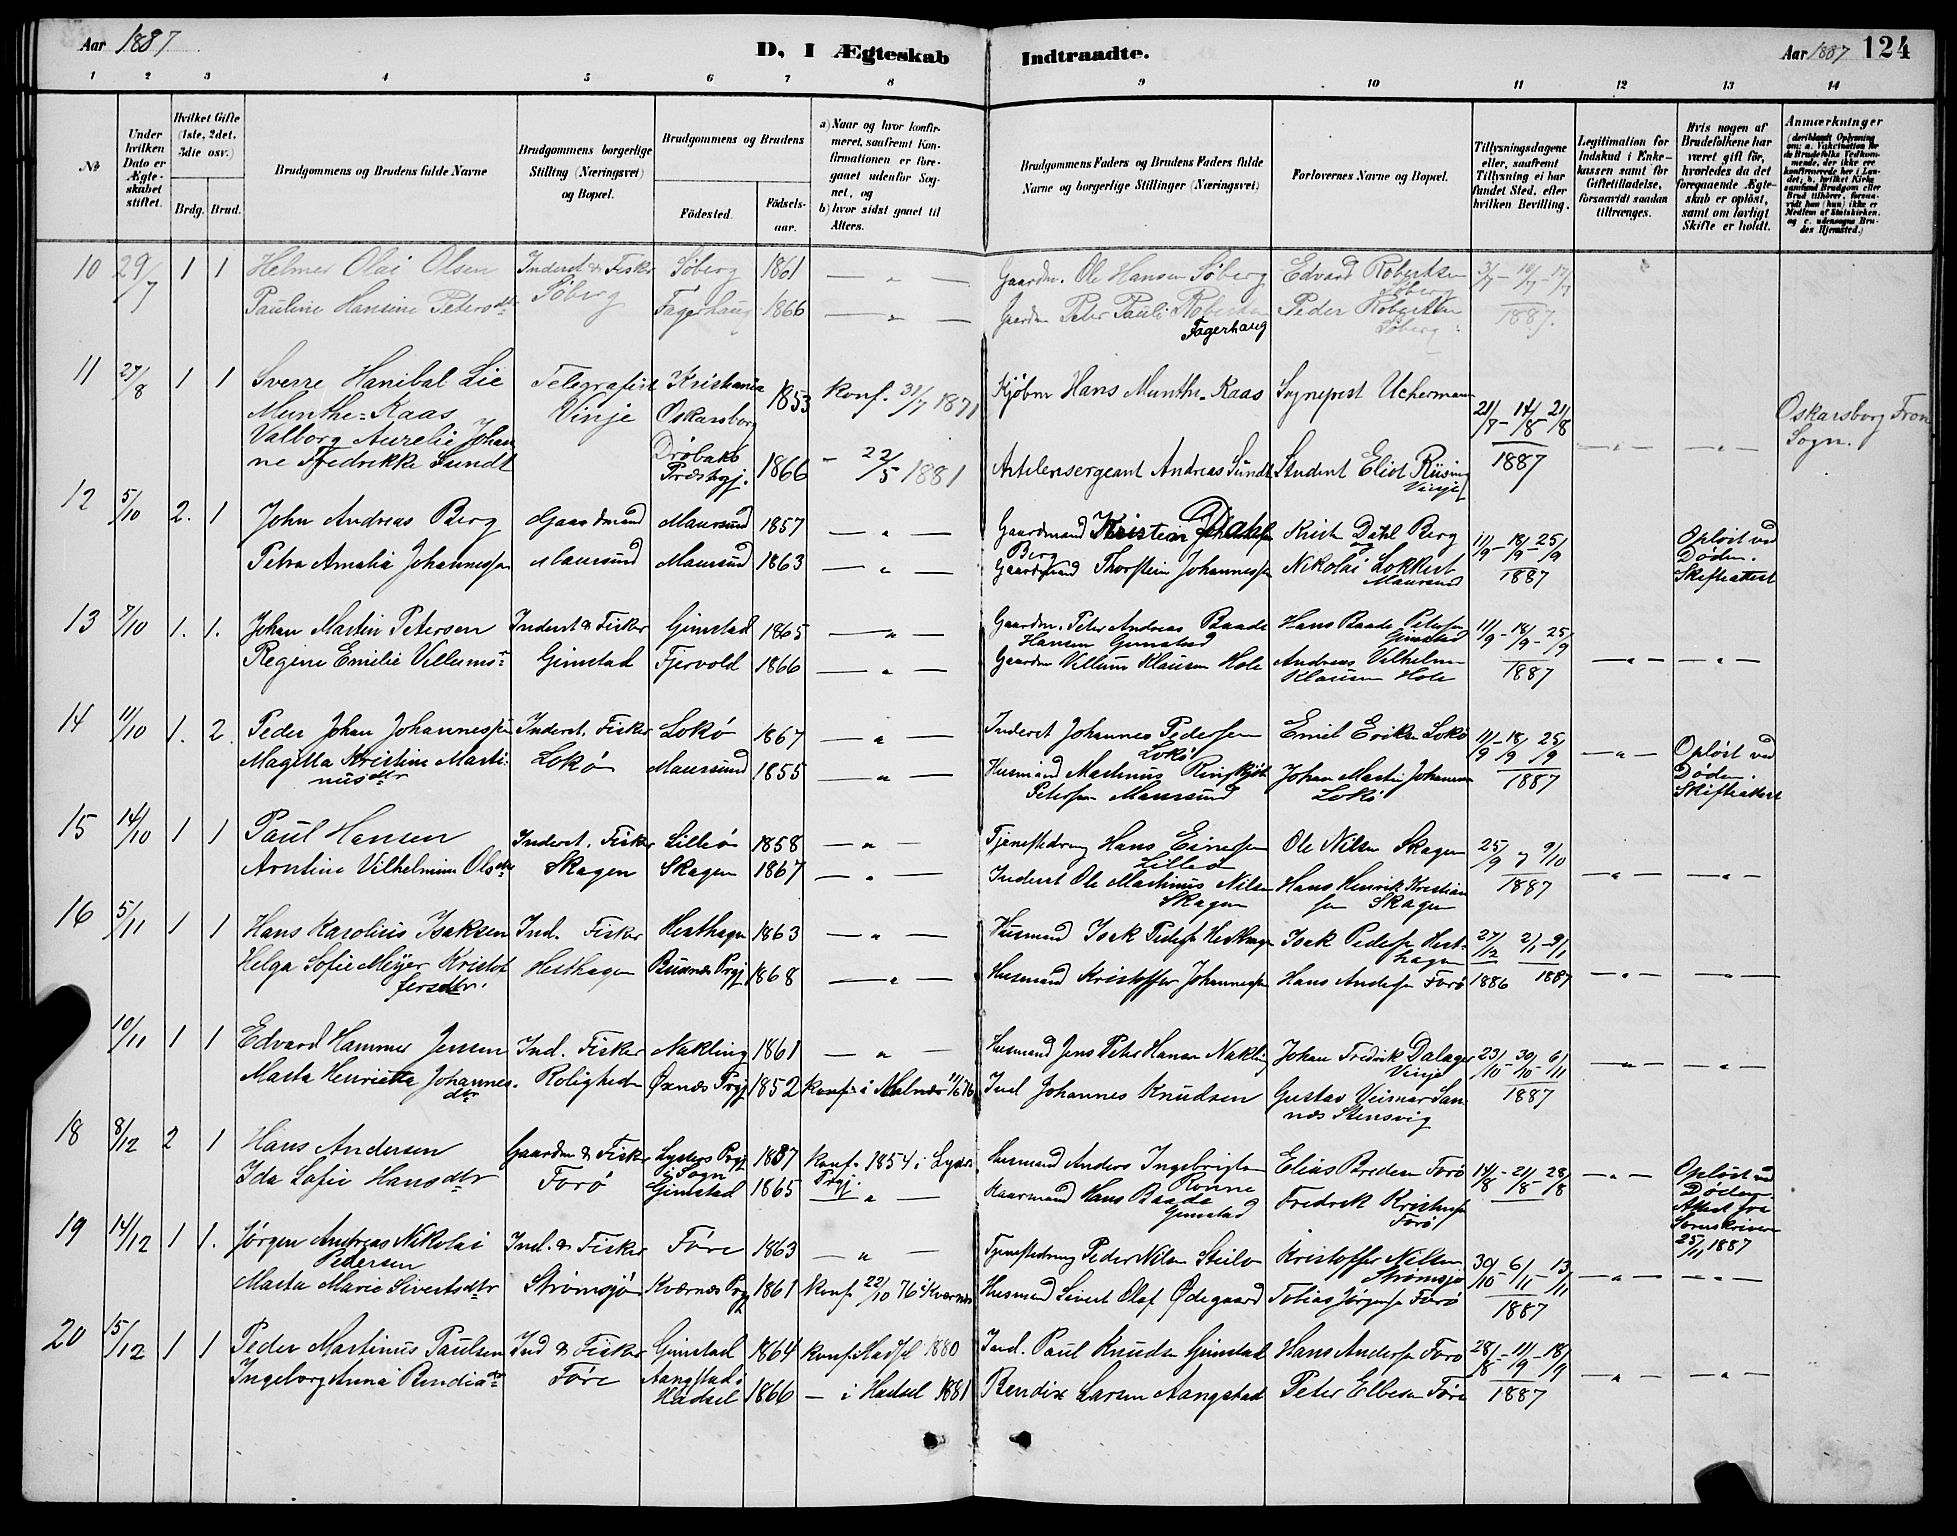 Aar 1887
D, I Ægteskab Indtraadte.
Aar 1887 124
1 2 3 4 5 6 7 8 9 10 11 12 13 14
No
Under hvilken Dato er Ægteskabet stiftet.
Hvilket Gifte (1ste, 2det, 3die osv.)
Brdg. Brud.
Brudgommens og Brudens fulde Navne
Brudgommens borgerlige Stilling (Næringsvei) og Bopæl.
Brudgommens og Brudens
Fødested.
Fødselsaar.
a) Naar og hvor konfirmeret, saafremt Konfirmationen er foregaaet udenfor Sognet, og
b) hvor sidst gaaet til Alters.
Brudgommens Faders og Brudens Faders fulde Navne og borgerlige Stillinger (Næringsvei)
Forlovernes Navne og Bopæl.
Tillysningsdagene eller, saafremt Tillysning ei har fundet Sted, efter hvilken Bevilling.
Legitimation for Indskud i Enkekassen samt for Giftetilladelse, forsaavidt saadan tiltrænges.
Hvis nogen af Brudefolkene har været gift før, hvorledes da det foregaaende Ægteskab er opløst, samt om lovligt Skifte er holdt.
Anmærkninger
10 29/7 1 1 Helmer Olai Olsen Inderst & Fisker Søberg 1861 — " — Gaardm. Ole Hansen Søberg Edvard Robertsen Søberg 3/7 - 10/7 - 17/7
Pauline Hansine Petersdtr Søberg Fagerhaug 1866 — " — Gaardm Peter Pauli Robertsen Fagerhaug Peder Robertsen Søberg 1887.
11 27/8 1 1 Sverre Hanibal Lie Munthe-Kaas Telegrafist Vinje Kristiania 1853 Konf. 31/7 1871 Kjøbm Hans Munthe-Kaas Sognepest Ucherman 21/7 - 14/8 - 21/8 Oskarsborg Fron Sogn.
Valborg Aurelie Johanne Fredrikke Sundt Oskarsborg Drøbaks Præstegj. 1866 — 22/5 1881 Artelerisergeant Andreas Sundt Student Eliot Riising Vinje 1887 — " — — " —
12 5/10 2. 1 John Andreas Berg Gaardmand Maursund 1857 — " — Gaardmand Kristian Dahl Berg Krist. Dahl Berg 11/9 - 18/9 - 25/9 Opløst ved Døden. Skifteattest
Petra Amalia Johannessen Maursund Maursund 1863 — " — Gaardmand Thorstein Johannessen Nikolai Lokkert Maursund 1887
13 7/10 1. 1. Johan Martin Petersen Inderst & Fisker Gimstad 1865 — " — Gaardm. Peter Andreas Baade Hansen Gimstad Hans Baade Petersen Gimstad 11/9 - 18/9 - 25/9
Regine Emilie Villumsdtr Gimstad Fjervold 1866 — " — Gaardm Villum Klausen Hole Andreas Vilhelm Klausen Hole 1887 — " — — " —
14 11/10 1. 2. Peder Johan Johannessen Inderst. Fisker Lokø 1867 — " — Inderst Johannes Pedersen Lokø Emil Eriksen Lokø 11/9 18/9 25/9 — " — Opløst ved Døden. Skifteattest
Magitta Kristine Martinusdtr Lokø Maursund 1855 — " — Husmand Martinus Petersen Maursund Johan Martin Johannessen Lokø 1887
15 14/10 1 1 Paul Hansen Inderst. Fisker Lilleø 1858 — " — Tjenestedreng Hans Einersen Lilleø Ole Nilsen Skagen 25/9 9/10
Arntine Vilhelmine Olsdtr Skagen Skagen 1867 — " — Inderst Ole Martinus Nilsen Skagen Hans Henrik Kristiansen Skagen 1887 — " — — " —
16 5/11 1 1 Hans Karolius Isaksen Ind. Fisker Hesthagen 1863 — " — Husmand Isak Pedersen Hesthagen Isak Pedersen Hesthagen 27/12 2/1 - 9/1
Helga Sofie Meyer Kristofersdtr. Hesthagen Buksnæs Prgj 1868 — " — Husmand Kristoffer Johannessen Hans Andersen Forø 1886 1887 — " — — " —
10/11 1 1 Edvard Hammer Jensen Ind. Fisker Nakling 1861 — " — Husmand Jens Peter Hansen Nakling Johan Fredrik Dalager Vinje 23/10 - 30/10 - 6/11 — " — — " —
Marta Henrietta Johannesdtr Roligheden Øxnæs Prgj 1852 Konf. i Malnæs Ind Johannes Knudsen Gustav Veimar Sannæs Stensvig 1887
18 8/12 2 1 Hans Andersen Gaardm & Fisker Lysters Prgj i Sogn 1837 Konf. 1854 i Lyster Prgj. Husmand Anders Ingebrigtsen Rønne Elias Bredesen Forø 14/8 - 21/8 - 28/8 — " — Opløst ved Døden Attest fra Sorenskriveren 25/11 1887
Ida Sofie Hansdtr Forø Gimstad 1865 — " — Gaarmand Hans Baade Gimstad Fredrik Kristensen Forø
19 14/12 1 1. Jørgen Andreas Nikolai Pedersen Ind. & Fisker Føre 1863 — " — Tjenestedreng Peder Nilsen Steilo Kristoffer Nilsen Strømsjø 30/10 - 6/11 - 13/11
Marta Marie Sivertsdtr Strømsjø Kværnæs Prgj 1861 Konf 22/10 76 i Kværnæs Husmand Sivert Olaf Ødegaard Tobias Jørgensen Forø 1887 — " — — " —
20 15/12 1 1 Peder Martinus Paulsen Ind & Fisker Gimstad 1864 Konf i Hadsel 1880 Ind. Paul Knudsen Gimstad Hans Andersen Forø 28/8 - 11/9 - 18/9
Ingeborg Anna Rendixdtr Føre Aangstad i Hadsel 1866 — i Hadsel 1881 Rendix Larsen Aangstad Peter Elbesen Føre 1887 — " — — " —